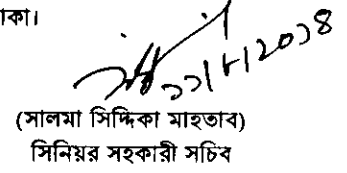 াকা।
২১/৮/২০১৪
(সালমা সিদ্দিকা মাহতাব)
সিনিয়র সহকারী সচিব